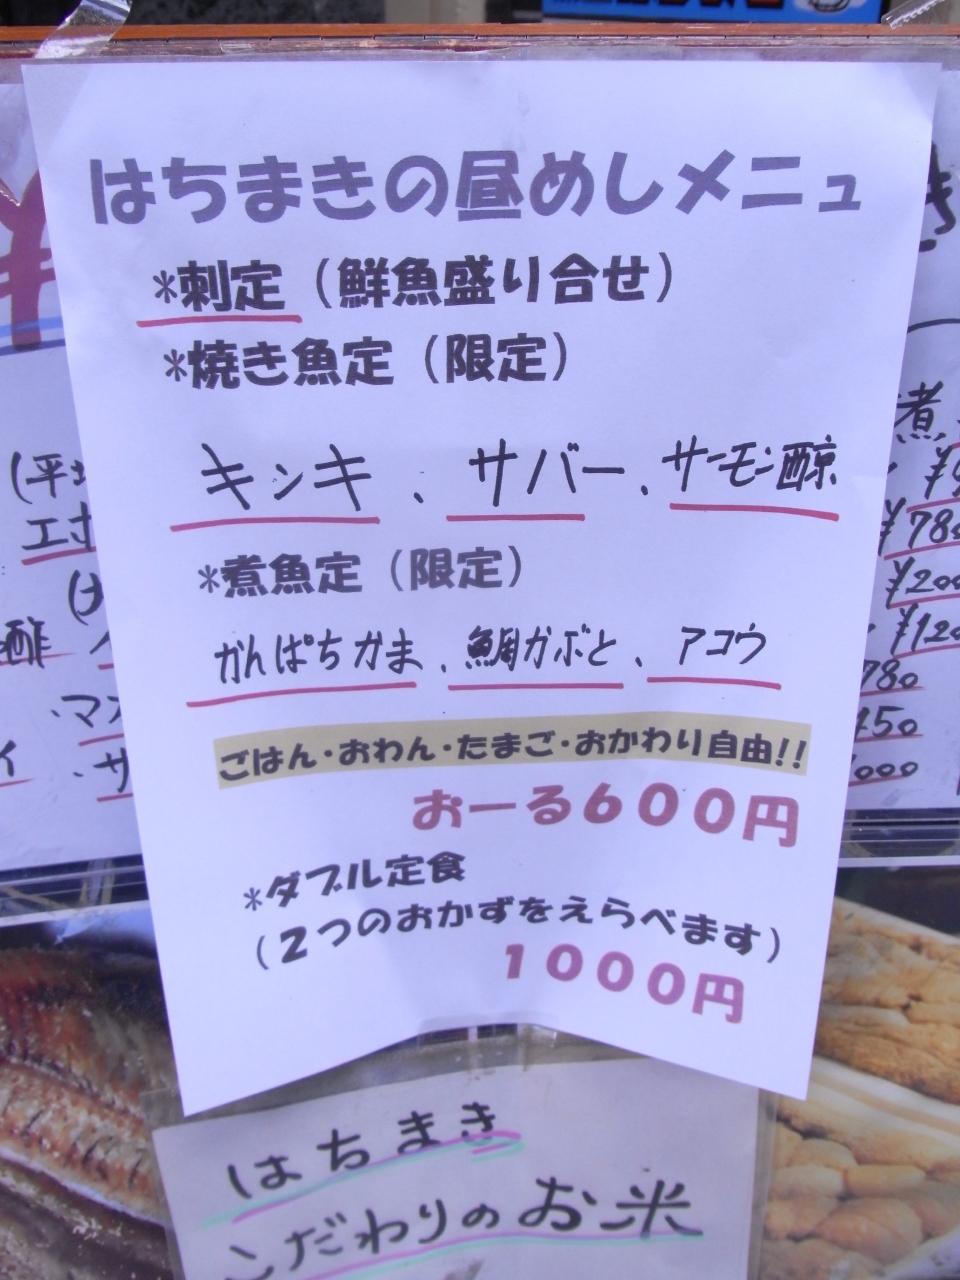 はちまきの昼めしメニュ
*刺定（鮮魚盛り合せ）
*焼き魚定（限定）
キンキ、サバー、サーモン醂
*煮魚定（限定）
がんぱちかま、鯛かぶと、アコウ
ごはん・おわん・たまご・おかわり自由!!
おーる600円
*ダブル定食
（2つのおかずをえらべます）
1000円
はちまき
こだわりのお米
煮
¥780
¥200
¥120
780
450
000
(平
エボ
酢
マス
サ